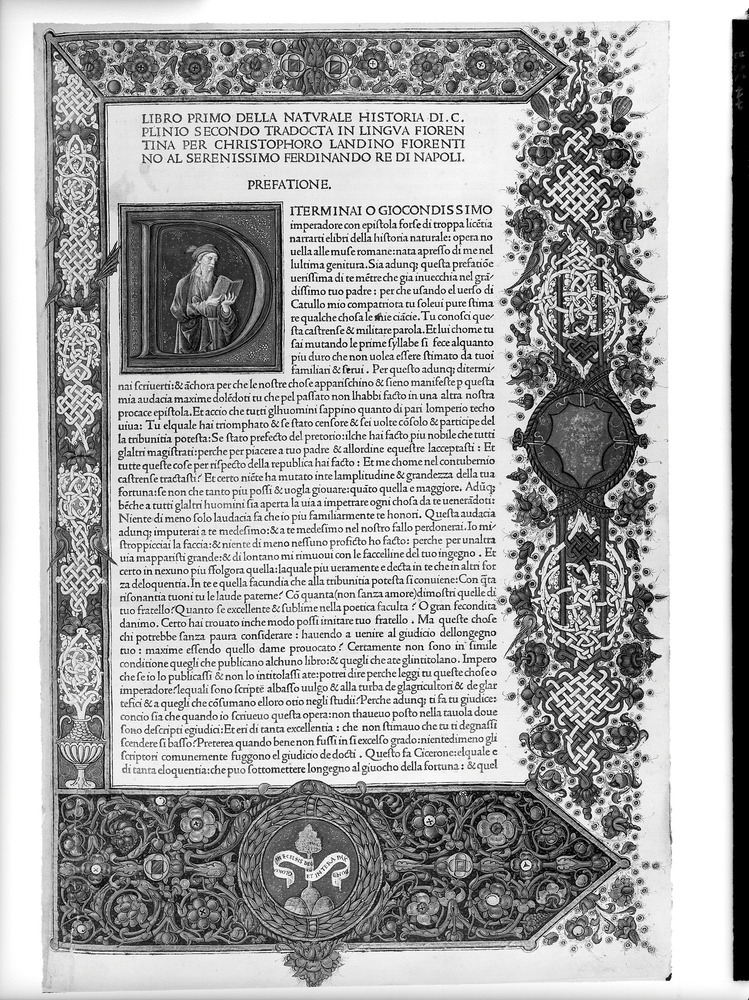 LIBRO PRIMO DELLA NATVRALE HISTORIA DI. C.
PLINIO SECONDO TRADOCTA IN LINGVA FIOREN
TINA PER CHRISTOPHORO LANDINO FIORENTI
NO AL SERENISSIMO FERDINANDO RE DI NAPOLI.
PREFATIONE.
DITERMINAI O GIOCONDISSIMO
imperadore con epiſtola forſe di troppa licẽtia
narrarti elibri della hiſtoria naturale: opera no
uella alle muſe romane: nata apreſſo di me nel
lultima genitura. Sia adunq; queſta prefatiõe
ueriſſima di te mẽtre che gia inuecchia nel grã
diſſimo tuo padre: per che uſando el uerſo di
Catullo mio compatriota tu ſoleui pure ſtima
re qualche choſa le mie ciãcie. Tu conoſci que
ſta caſtrenſe & militare parola. Et lui chome tu
ſai mutando le prime ſyllabe ſi fece alquanto
piu duro che non uolea eſſere ſtimato da tuoi
familiari & ſerui. Per queſto adunq; ditermi
nai ſcriuerti: & ãchora per che le noſtre choſe appariſchino & ſieno manifeſte p queſta
mia audacia maxime dolẽdoti tu che pel paſſato non lhabbi facto in una altra noſtra
procace epiſtola. Et accio che tutti glhuomini ſappino quanto di pari lomperio techo
uiua: Tu elquale hai triomphato & ſe ſtato cenſore & ſei uolte cõſolo & participe del
la tribunitia poteſta: Se ſtato prefecto del pretorio: ilche hai facto piu nobile che tutti
glaltri magiſtrati: perche per piacere a tuo padre & allordine equeſtre lacceptaſti: Et
tutte queſte coſe per riſpecto della republica hai facto: Et me chome nel contubernio
caſtrenſe tractaſti? Et certo niẽte ha mutato inte lamplitudine & grandezza della tua
fortuna: ſe non che tanto piu poſſi & uogla giouare: quãto quella e maggiore. Adũq;
bẽche a tutti glaltri huomini ſia aperta la uia a impetrare ogni choſa da te uenerãdoti:
Niente di meno ſolo laudacia fa che io piu familiarmente te honori. Queſta audacia
adunq; imputerai a te medeſimo: & a te medeſimo nel noſtro fallo perdonerai. Io mi
ſtroppicciai la faccia: & niente di meno neſſuno proficto ho facto: perche per unaltra
uia mappariſti grande: & di lontano mi rimuoui con le faccelline del tuo ingegno. Et
certo in nexuno piu ſſolgora quella: laquale piu ueramente e decta in te che in altri for
za deloquentia. In te e quella facundia che alla tribunitia poteſta ſi conuiene: Con q̃ta
riſonantia tuoni tu le laude paterne? Cõ quanta (non ſanza amore) dimoſtri quelle di
tuo fratello? Quanto ſe excellente & ſublime nella poetica faculta? O gran fecondita
danimo. Certo hai trouato inche modo poſſi imitare tuo fratello. Ma queſte choſe
chi potrebbe ſanza paura conſiderare: hauendo a uenire al giudicio dellongegno
tuo: maxime eſſendo quello dame prouocato? Certamente non ſono in ſimile
conditione quegli che publicano alchuno libro: & quegli che ate glintitolano. Impero
che ſe io lo publicaſſi & non lo intitolaſſi ate: potrei dire perche leggi tu queſte choſe o
imperadore? lequali ſono ſcriptẽ albaſſo uulgo & alla turba de glagricultori & de glar
tefici & a quegli che cõſumano elloro otio negli ſtudii? Perche adunq; ti fa tu giudice:
concio ſia che quando io ſcriueuo queſta opera: non thaueuo poſto nella tauola doue
ſono deſcripti egiudici: Et eri di tanta excellentia: che non ſtimauo che tu ti degnaſſi
ſcendere ſi baſſo? Preterea quando bene non fuſſi in ſi excelſo grado: nientedimeno gli
ſcriptori comunemente fuggono el giudicio de docti. Queſto fa Cicerone: elquale e
di tanta eloquentia: che puo ſottomettere longegno al giuocho della fortuna: & quel
ET INTERA PAX